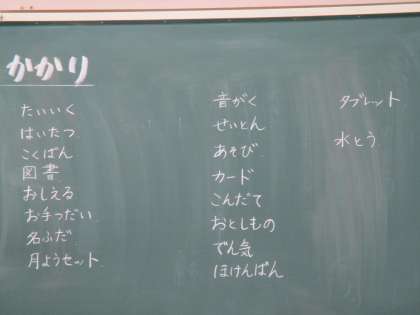 かかり
たいいく
はいたつ
こくばん
図書
おしえる
お手つだい
名ふだ
月ようセット
音がく
せいとん
あそび
カード
こんだて
おとしもの
でん気
ほけんばん
タブレット
水とう